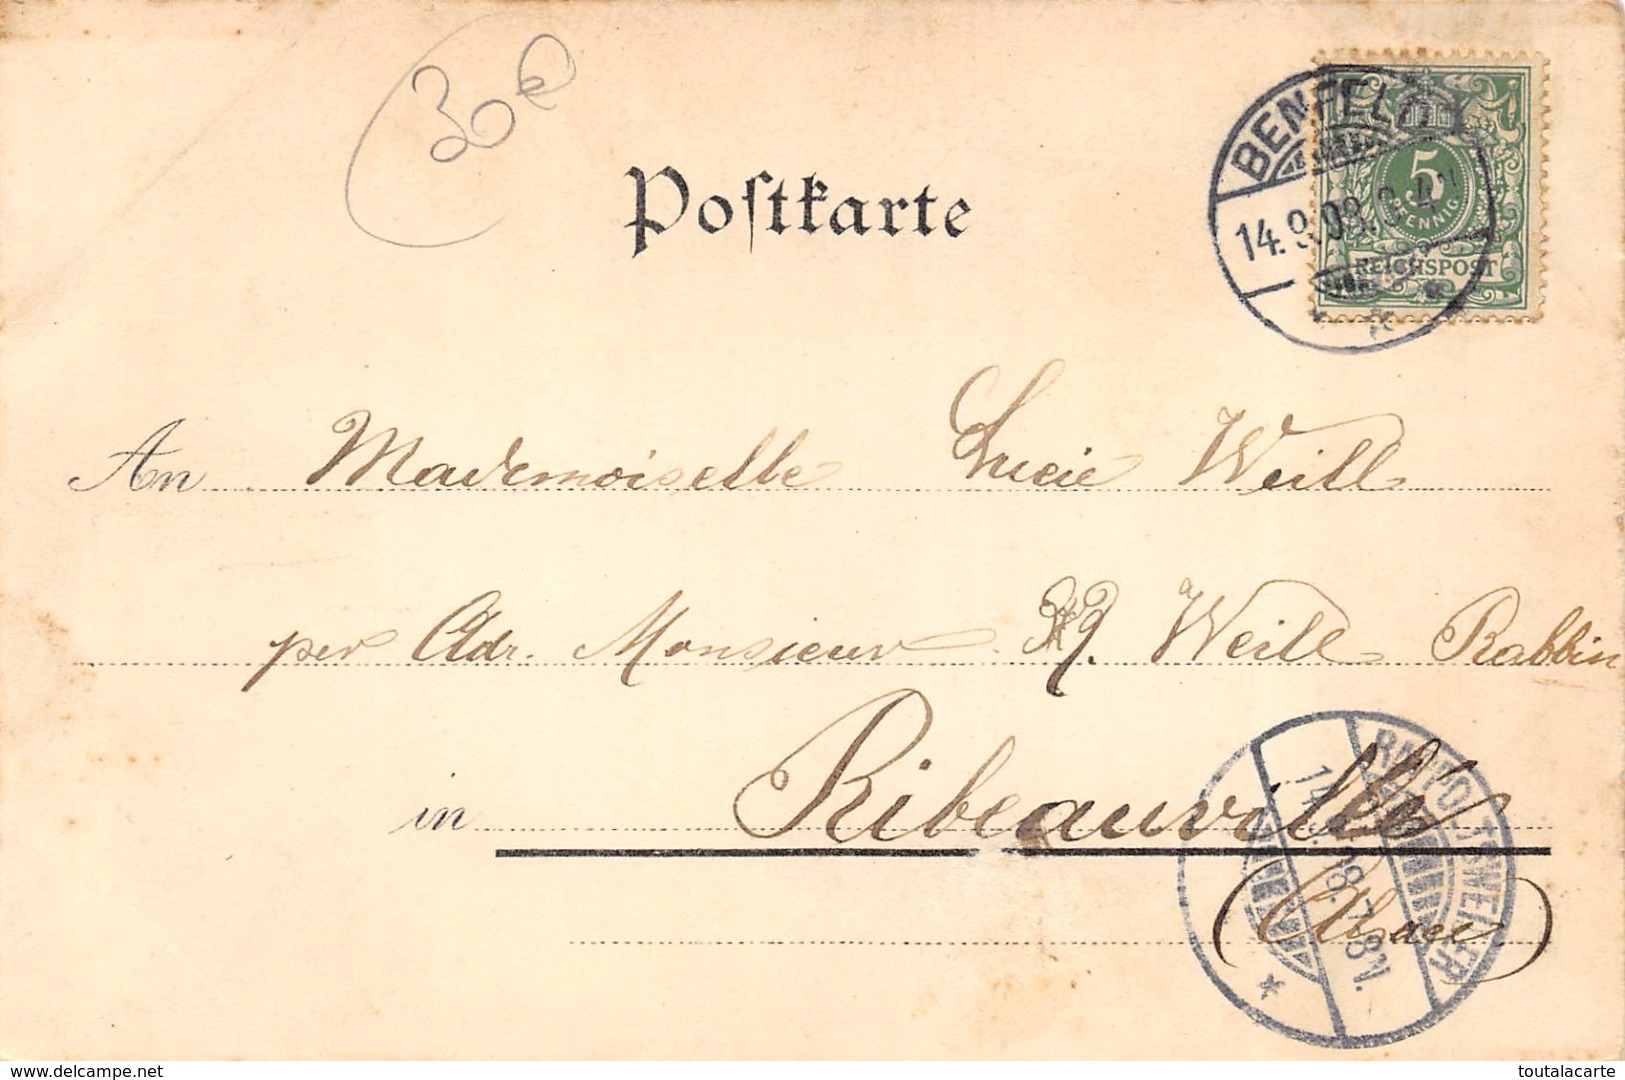 30€
Postkarte
BENFELD
14.9.98.3-4N
5
PFENNIG
REICHSPOST
An Mademoiselle Lucie Weill
per Adr. Monsieur Weill Rabbin
in Ribeauvillé
(Alsace)
RAPPOLTSWEILER
14.9.98.7-8N.
www.delcampe.net
toutalacarte